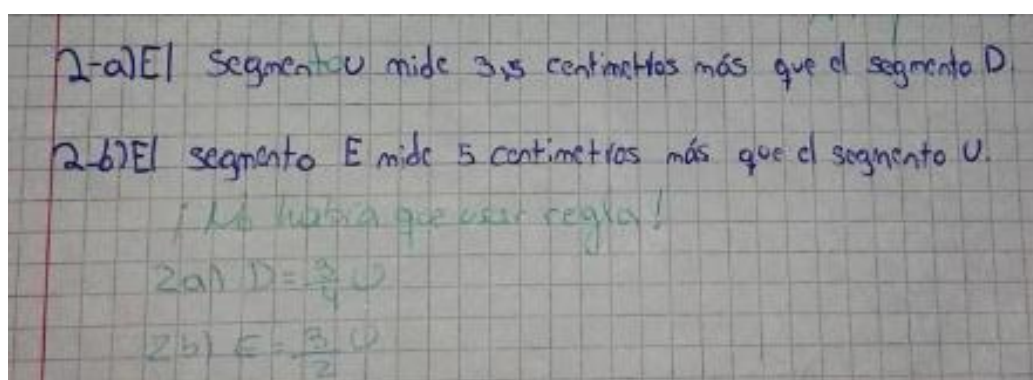 2-a) El segmento U mide 3,5 centimetros más que el segmento D.
2-b) El segmento E mide 5 centimetros más que el segmento U.
¡No había que usar regla!
2a) D = 3/4 U
2b) E = 3/2 U